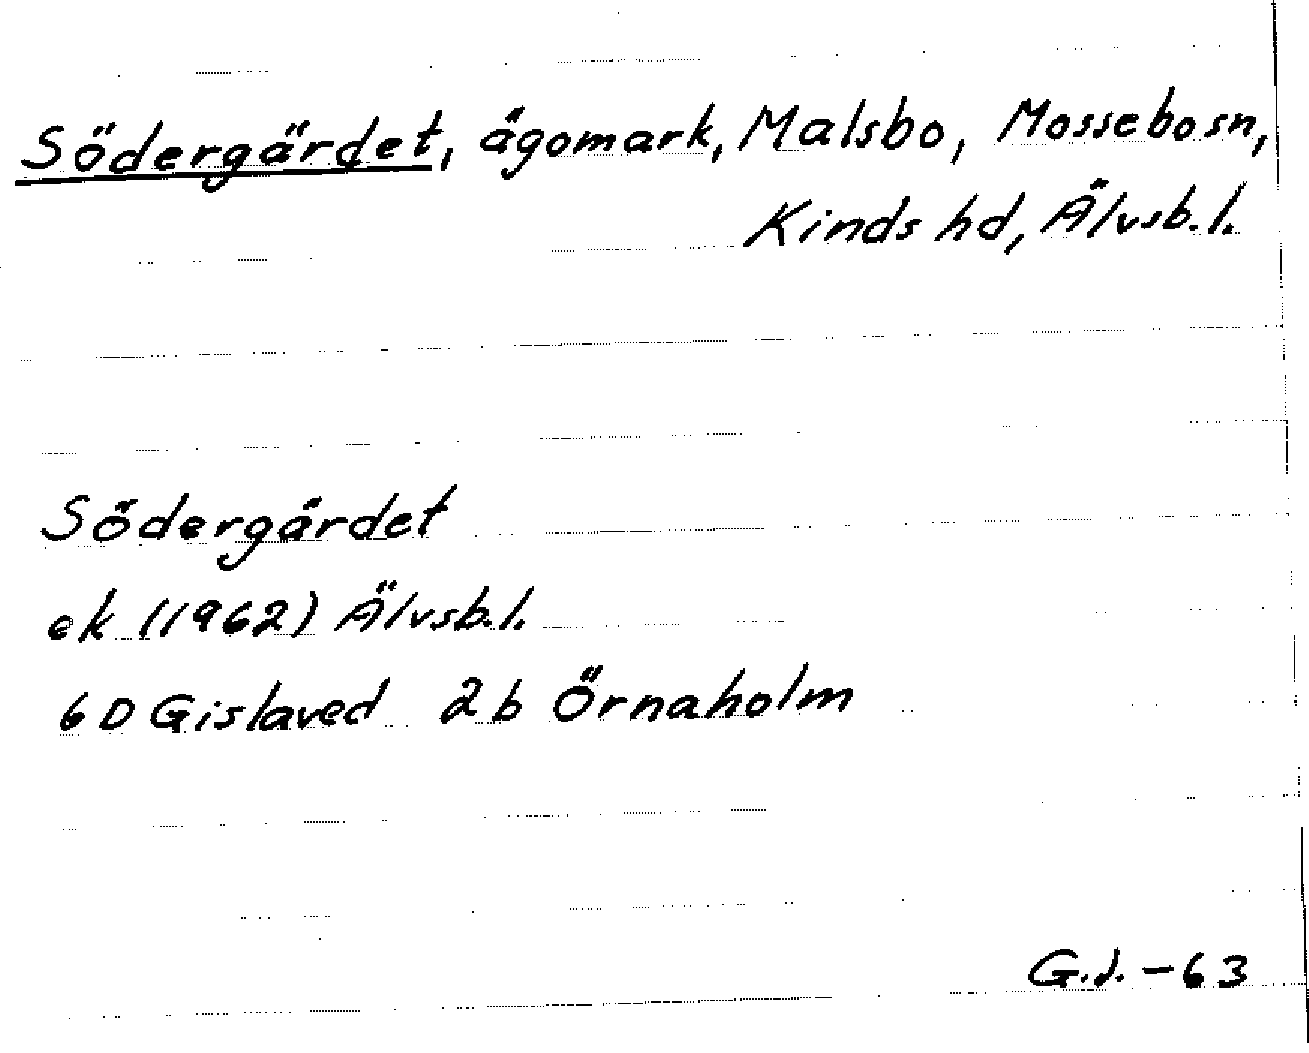 Södergärdet, ägomark, Malsbo, Mossebo sn,
Kinds hd, Älvsb. l.
Södergärdet
ek (1962) Älvsb. l.
6 D Gislaved 2 b Örnaholm
G.J. -63